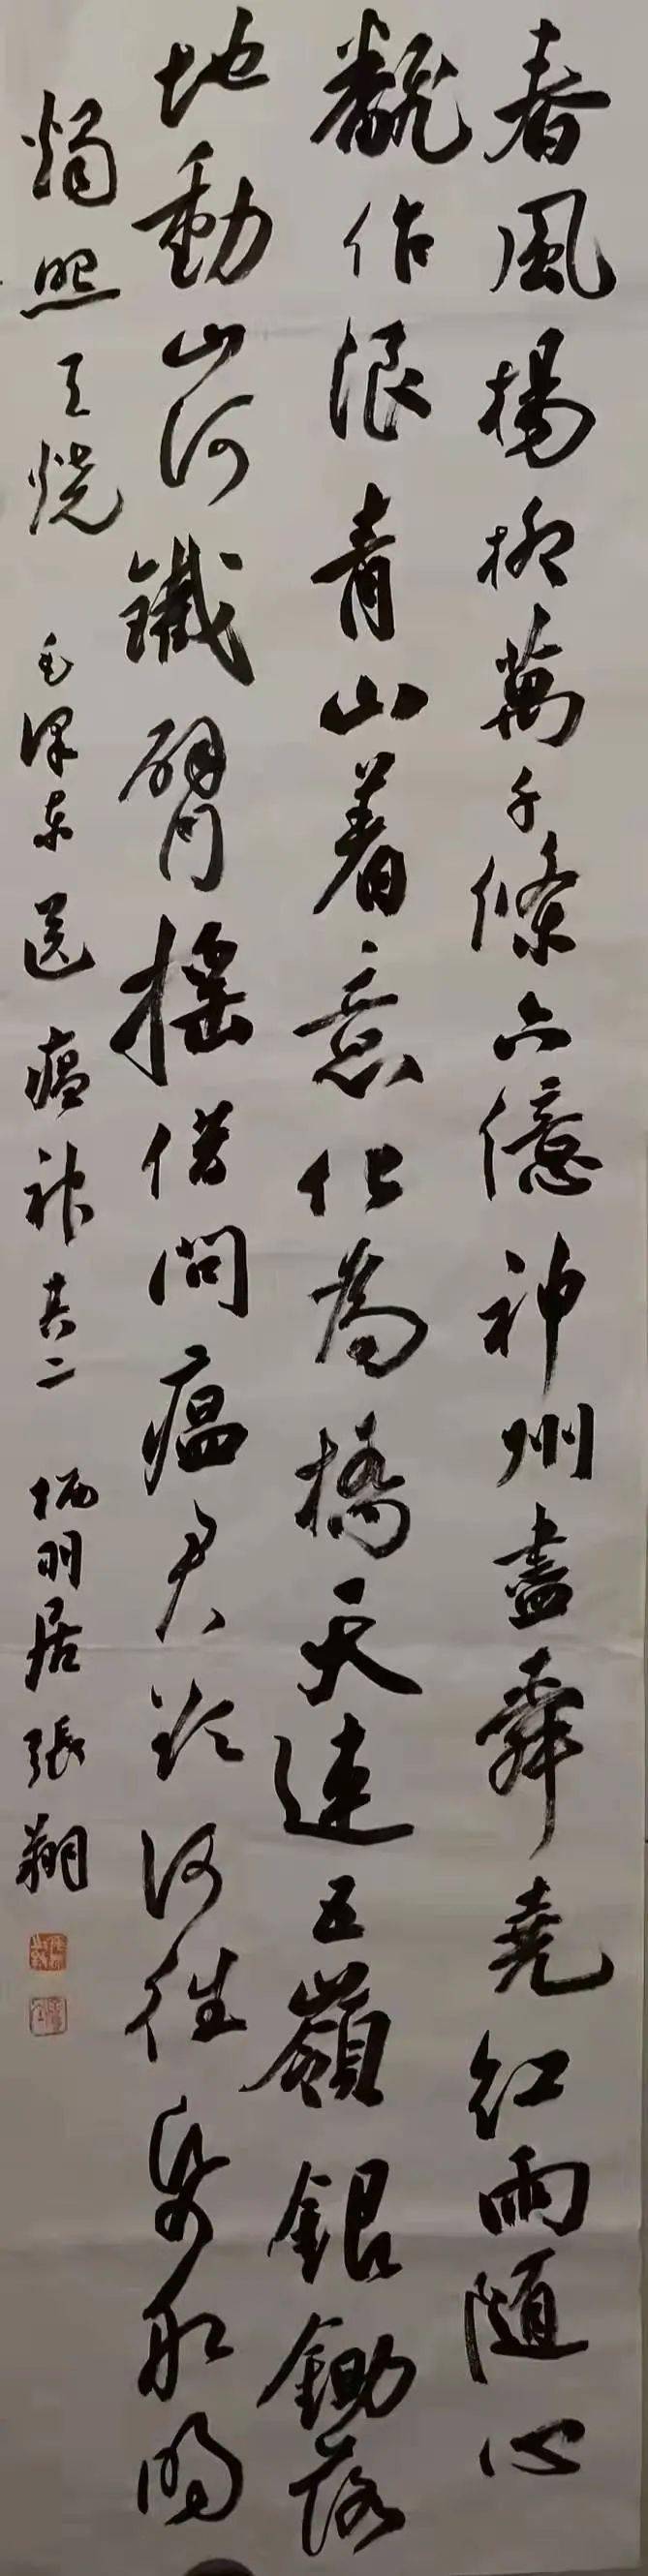 春風楊柳萬千條六億神州盡舜堯紅雨隨心
飜作浪青山着意化為橋天連五嶺銀鋤落
地動山河鐵臂搖借問瘟君欲何往紙船明
燭照天燒 毛澤東送瘟神其二 栖羽居張翔